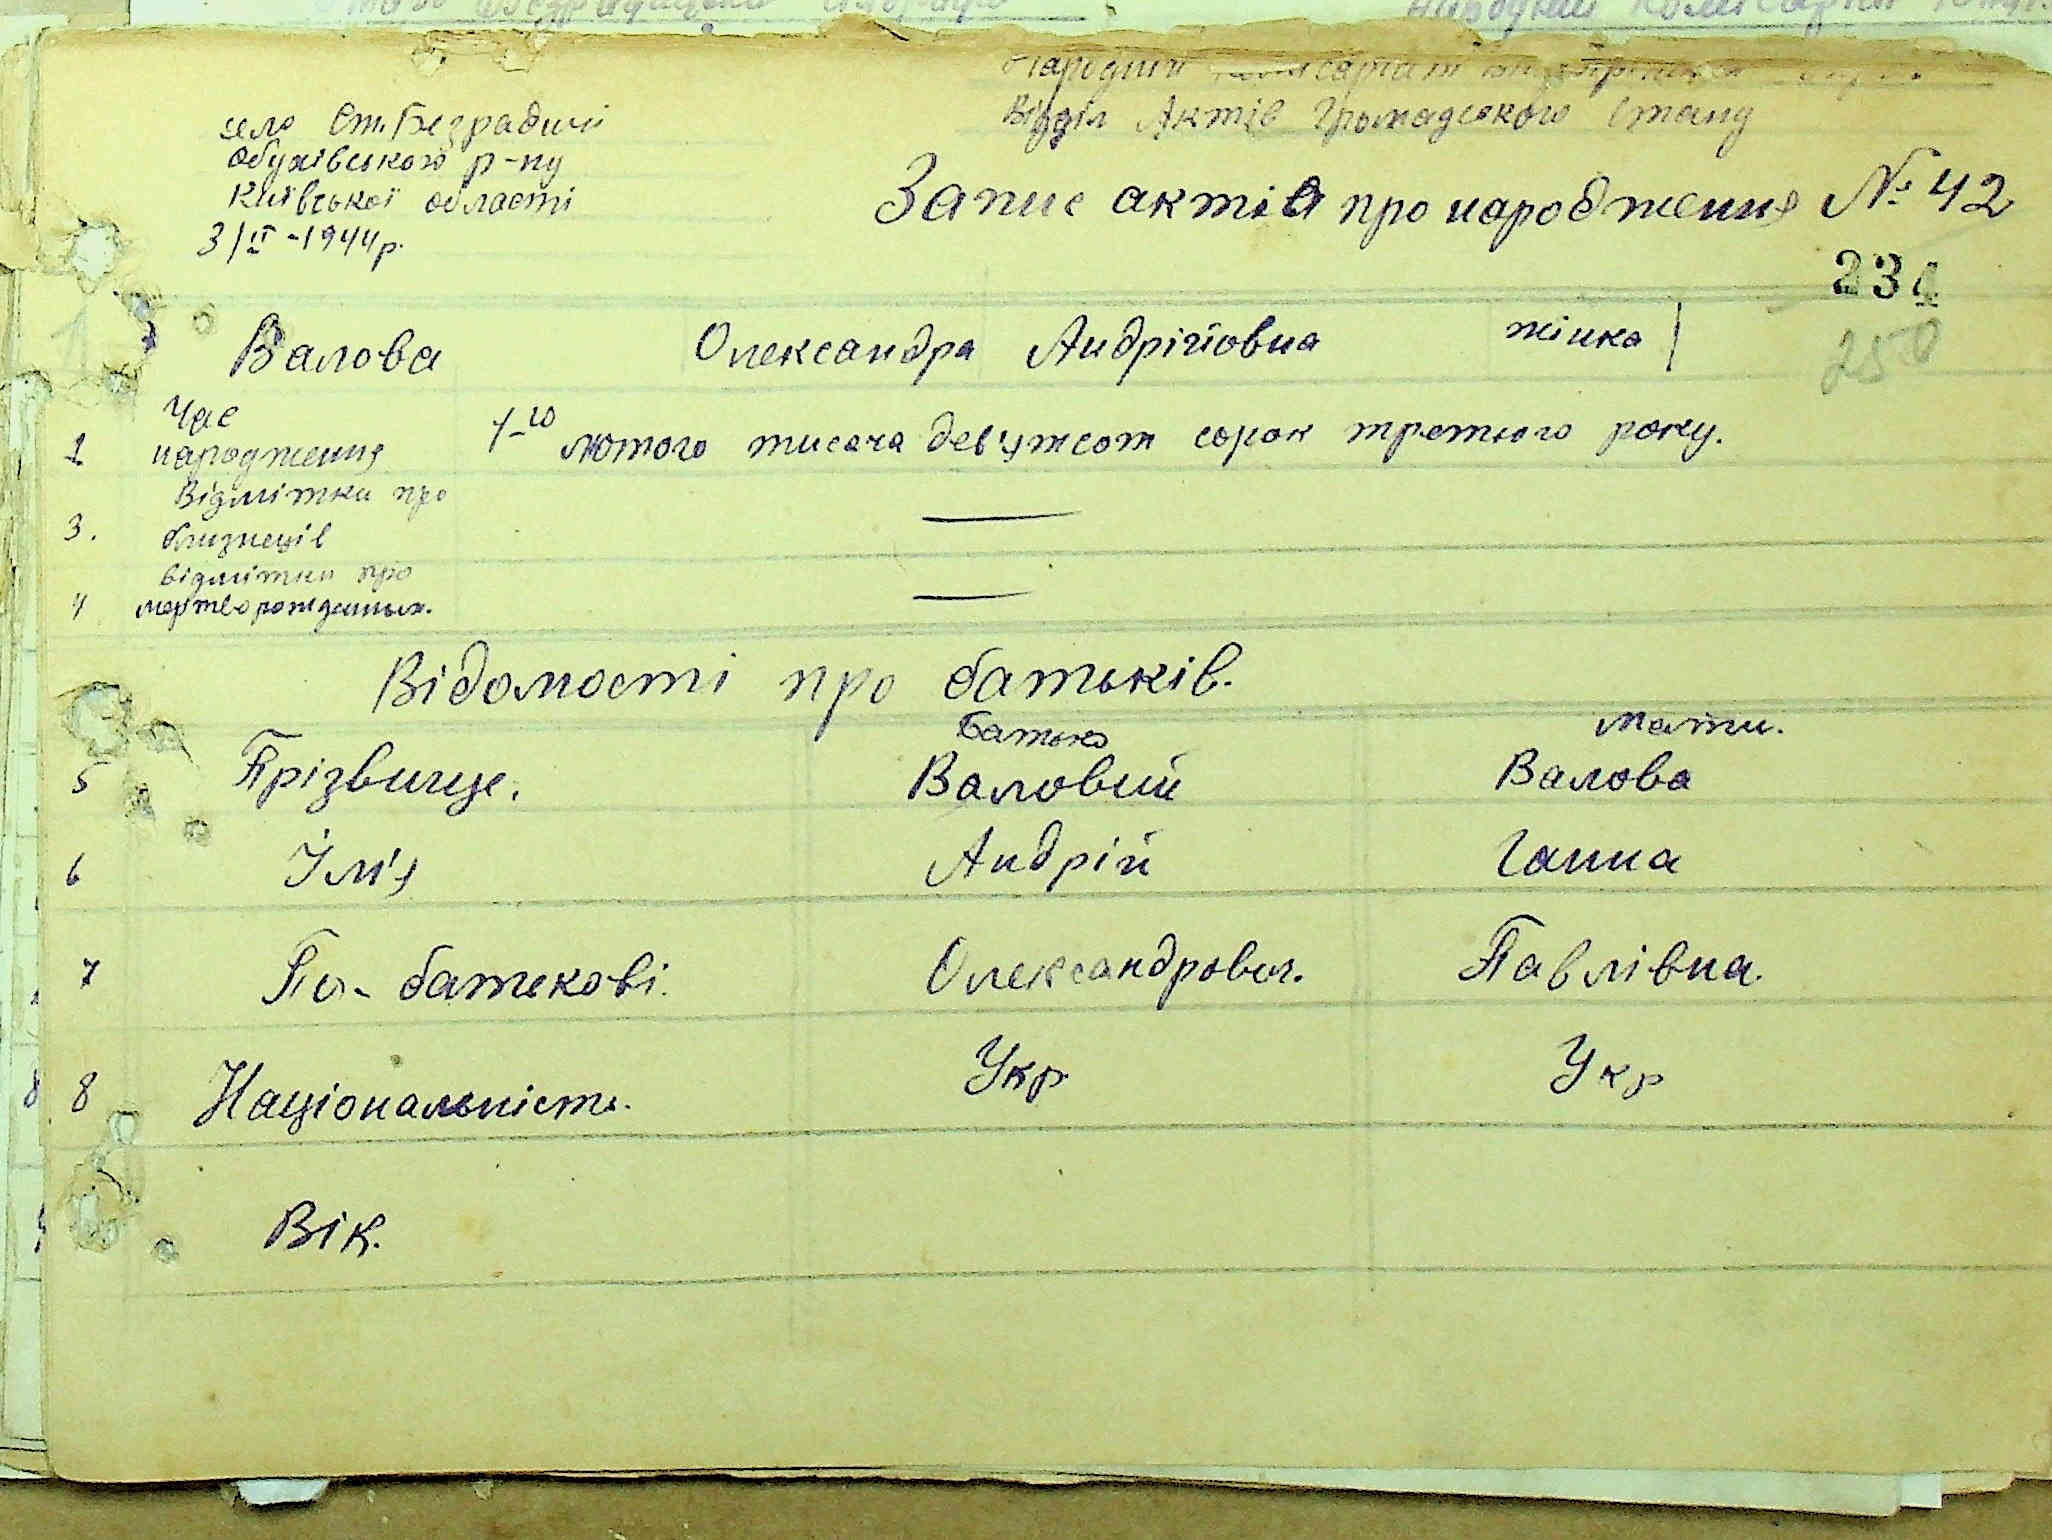 село Ст. Безрадичі
Обухівського р-ну
Київської області
3/ІІ-1944р.
Народний комісаріат внутрішніх
Відділ Актів Громадського Стану
Запис актів про народження № 42
234
250
Валова Олександра Андрійовна жінка
1 Час народження 1-го лютого тисяча девятсот сорок третього року.
3. Відмітки про близнеців —
4 відмітки про мертворожденных. —
Відомості про батьків.
Батько Мати.
5 Прізвище. Валовий Валова
6 Їм'я Андрій Ганна
7 По-батькові. Олександрович. Павлівна.
8 Національність. Укр Укр
Вік.